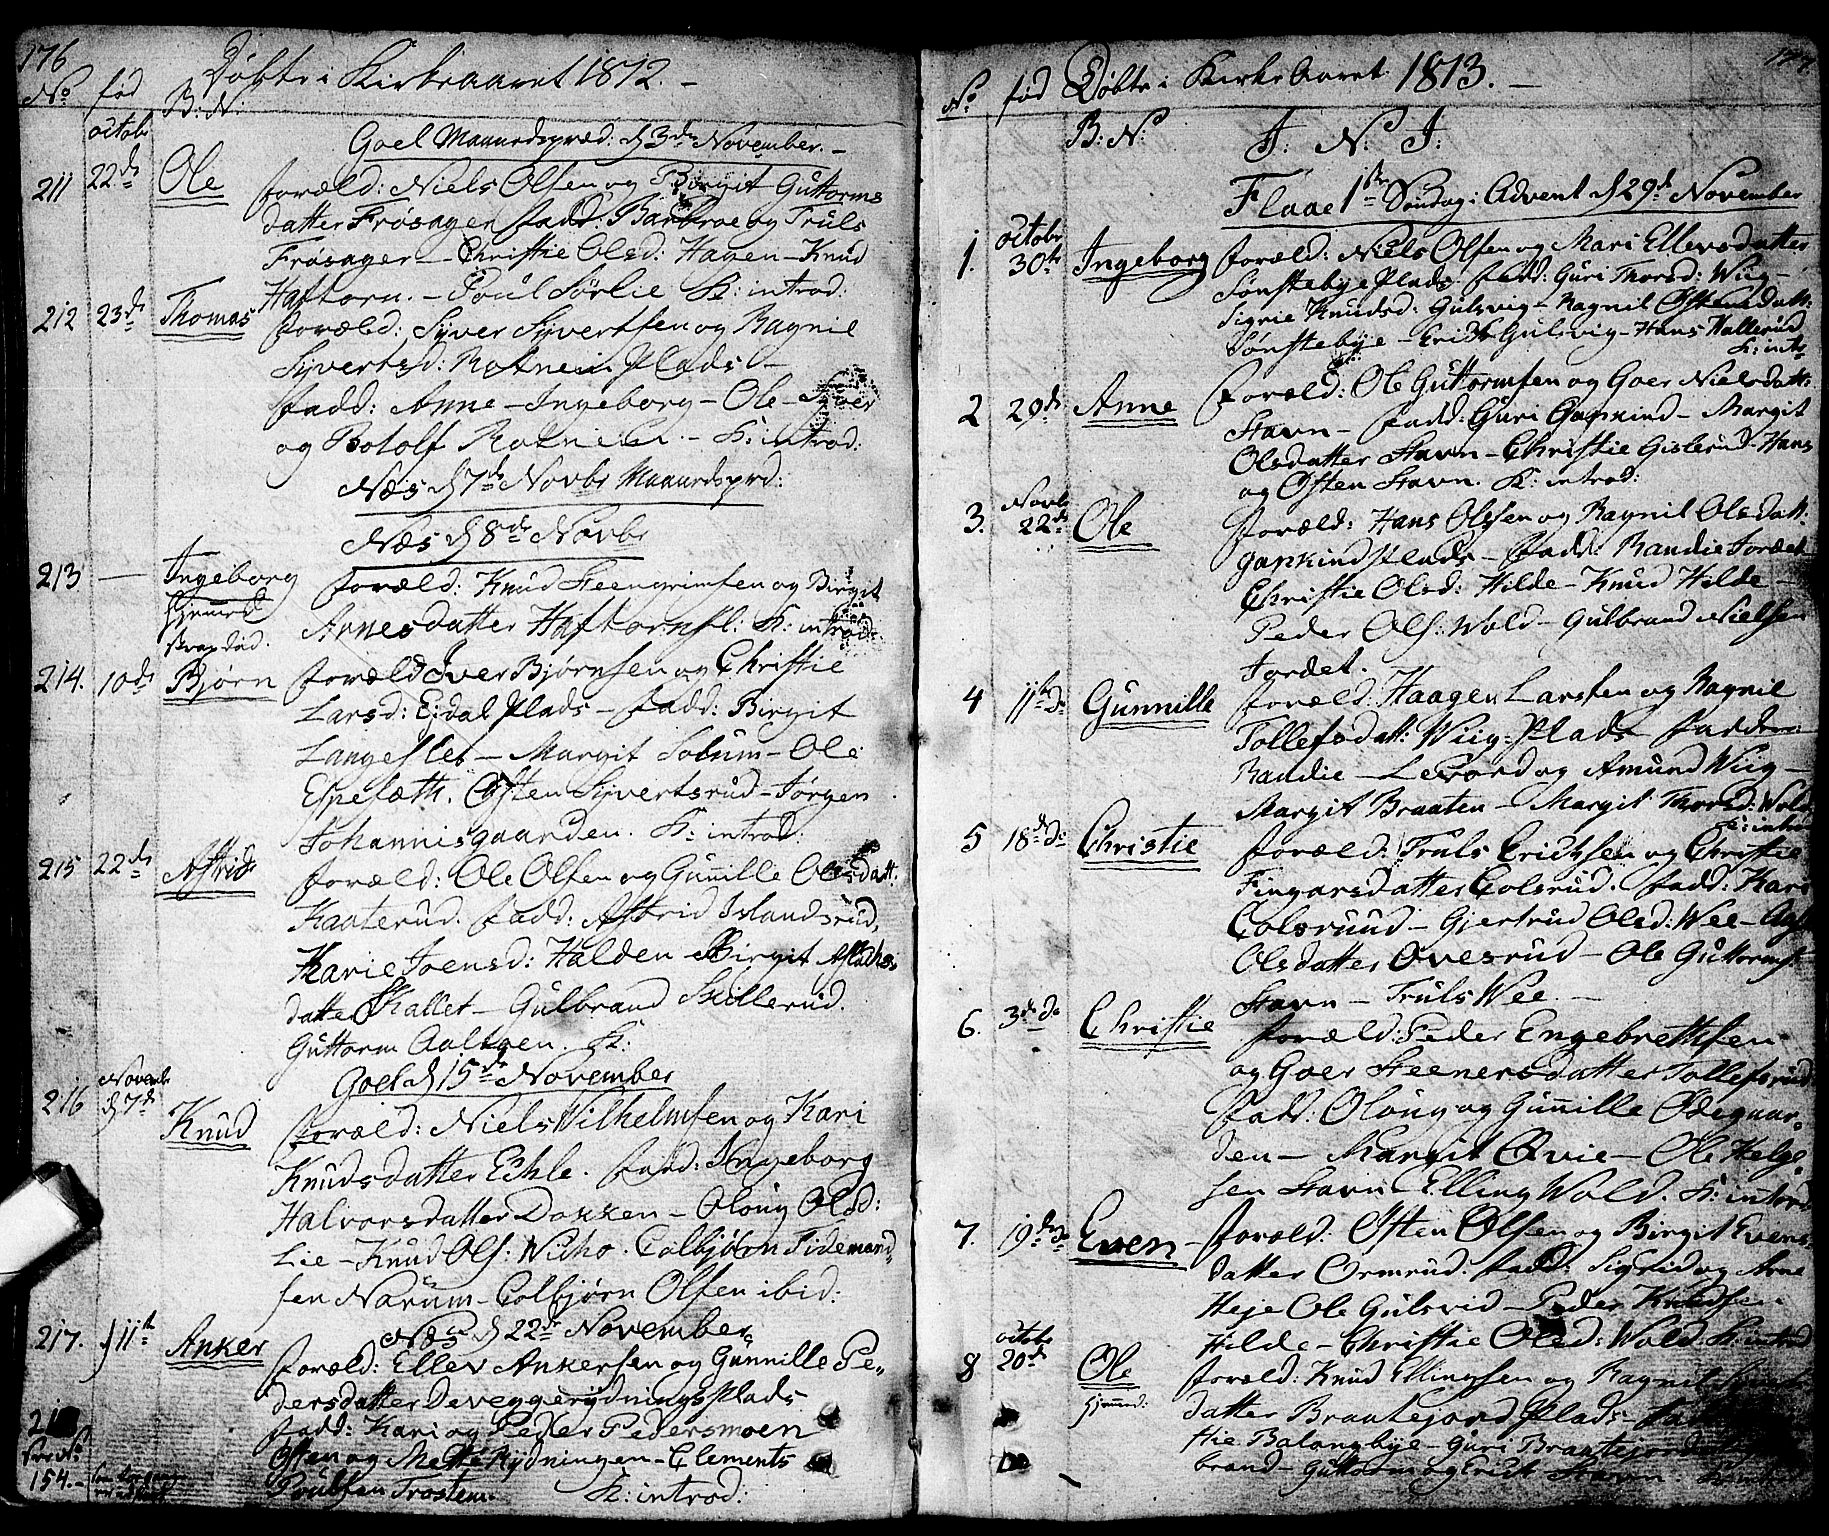 176
Døbte i Kirkeaaret 1812. -
No fød B: N:
octobr
Goel Maanedspræd: d 3de November. -
211 22de Ole foræld: Niels Olsen og Birgit Guttorms
datter Frøsager fadd: Barbroe og Truls
Frøsager - Christie Olsd: Hagen - Knud
Haftorn. - Poul Sørlie K: introd:
212 23de Thomas foræld: Syver Syvertsen og Ragnil
Syvertsd: Rotneim Plads -
fadd: Anne - Ingeborg - Ole - Syver
og Botolf K: introd:
Næs d 7de Novbr Maanedsprd:
Næs d 8de Novbr
213 - Ingeborg foræld: Knud Steengrimsen og Birgit
hjemmed Arnesdatter Haftornpl: K: introd:
strax død.
214. 10de Bjørn foræld Iver Bjørnsen og Christie
Larsd: Ejdal Plads - fadd: Birgit
Langeslet - Margit Sobum - Ole
Espesæth. Østen Syvertsrud - Jørgen
Johannisgaarden. K: introd:
215 22de Astrid foræld: Ole Olsen og Gunille Olesdatt:
Kaaterud. fadd: Astrid Islandsrud,
Karie Joensd: Halden - Birgit Aslachs
datter Skallet - Gulbrand Skillerud.
Guttorm K:
Goel d 15de November
216 Novembr d 7de Knud foræld: Niels Vilhelmsen og Kari
Knudsdatter Eckle. fadd: Ingeborg
Halvorsdatter Dokken - Oloug Olsd:
Lie - Knud Ols: Wibo. Colbjørn Tidemand
sen Narum - Colbjørn Olsen ibid:
Næs d 22de November
217. 11te Anker foræld: Ellev Ankersen og Gunnille Pe-
dersdatter Deveggerydnings Plads
fadd: Kari og Peder Pedersmoen
Østen og Mette Rydningen - Clements
Poulsen Trostem. K: introd:
154. -
177.
No fød Døbte i Kirke Aaret 1813. -
B: N: J. N. J:
Flaae 1ste Søndag i Advent d 29de November
1. octobr 30te Ingeborg foræld: Niels Olsen og Mari Ellevsdatter
Sønstebye Plads fadd: Guri Thorsd: Wiig -
Sigrie Knudsd: Gulsvig - Ragnil Østensdatt:
Sønstebye - Erich Gulsvig - Hans Hallerud
K: intr
2 29de Anne foræld: Ole Guttormsen og Goer Nielsdatt:
Stavn - fadd: Guri Gapkind - Margit
Olsdatter Stavn - Christie Gislerud - Hans
og Østen Stavn. K: introd:
3. Novbr 22de Ole foræld: Hans Olssen og Ragnil Olsdatt:
Gapkind Plads - fadd: Randie Jordet
Christie Olsd: Hilde - Knud Hilde -
Peder Ols: Wold - Gulbrand Nielsen
Jordet.
4 11te do Gunnille foræld: Haagen Larssen og Ragnil
Tollefsdatt: Wiig-Plads faddere:
Randie - Levord og Amund Wiig -
Margit Braaten - Margit Thorsd: Wold
K: introd
5 18de do Christie foræld: Truls Erichsen og Christie
Fingarsdatter Colsrud. fadd: Kari
Colsruud - Gjertrud Olsd: Wee -
Olsdatter Ovesrud - Ole Guttorms:
Stavn - Truls Wee. -
6. 3de do Christie foræld: Peder Engebrethsen
og Goer Steenersdatter Tollefsrud
fadd: Oloug og Gunille Ødegaar-
den - Margit Qvie - Ole Helge
sen Stavn - Elling Wold. K: introd
7. 19de do Even foræld: Østen Olsen og Birgit Evens-
datter Ormrud. fadd: Sigrid og Arne
Heje Ole Gulsvid - Peder Knudsen
Hilde - Christie Olsd: Wold K: introd
8 octobr 20de Ole foræld: Knud Ellingsen og Ragnil
hjemmed: datter Braatejord Plads -
stie Balangbye - Guri Braatejord
brand - Guttorm og Erich Stavn. K: introd